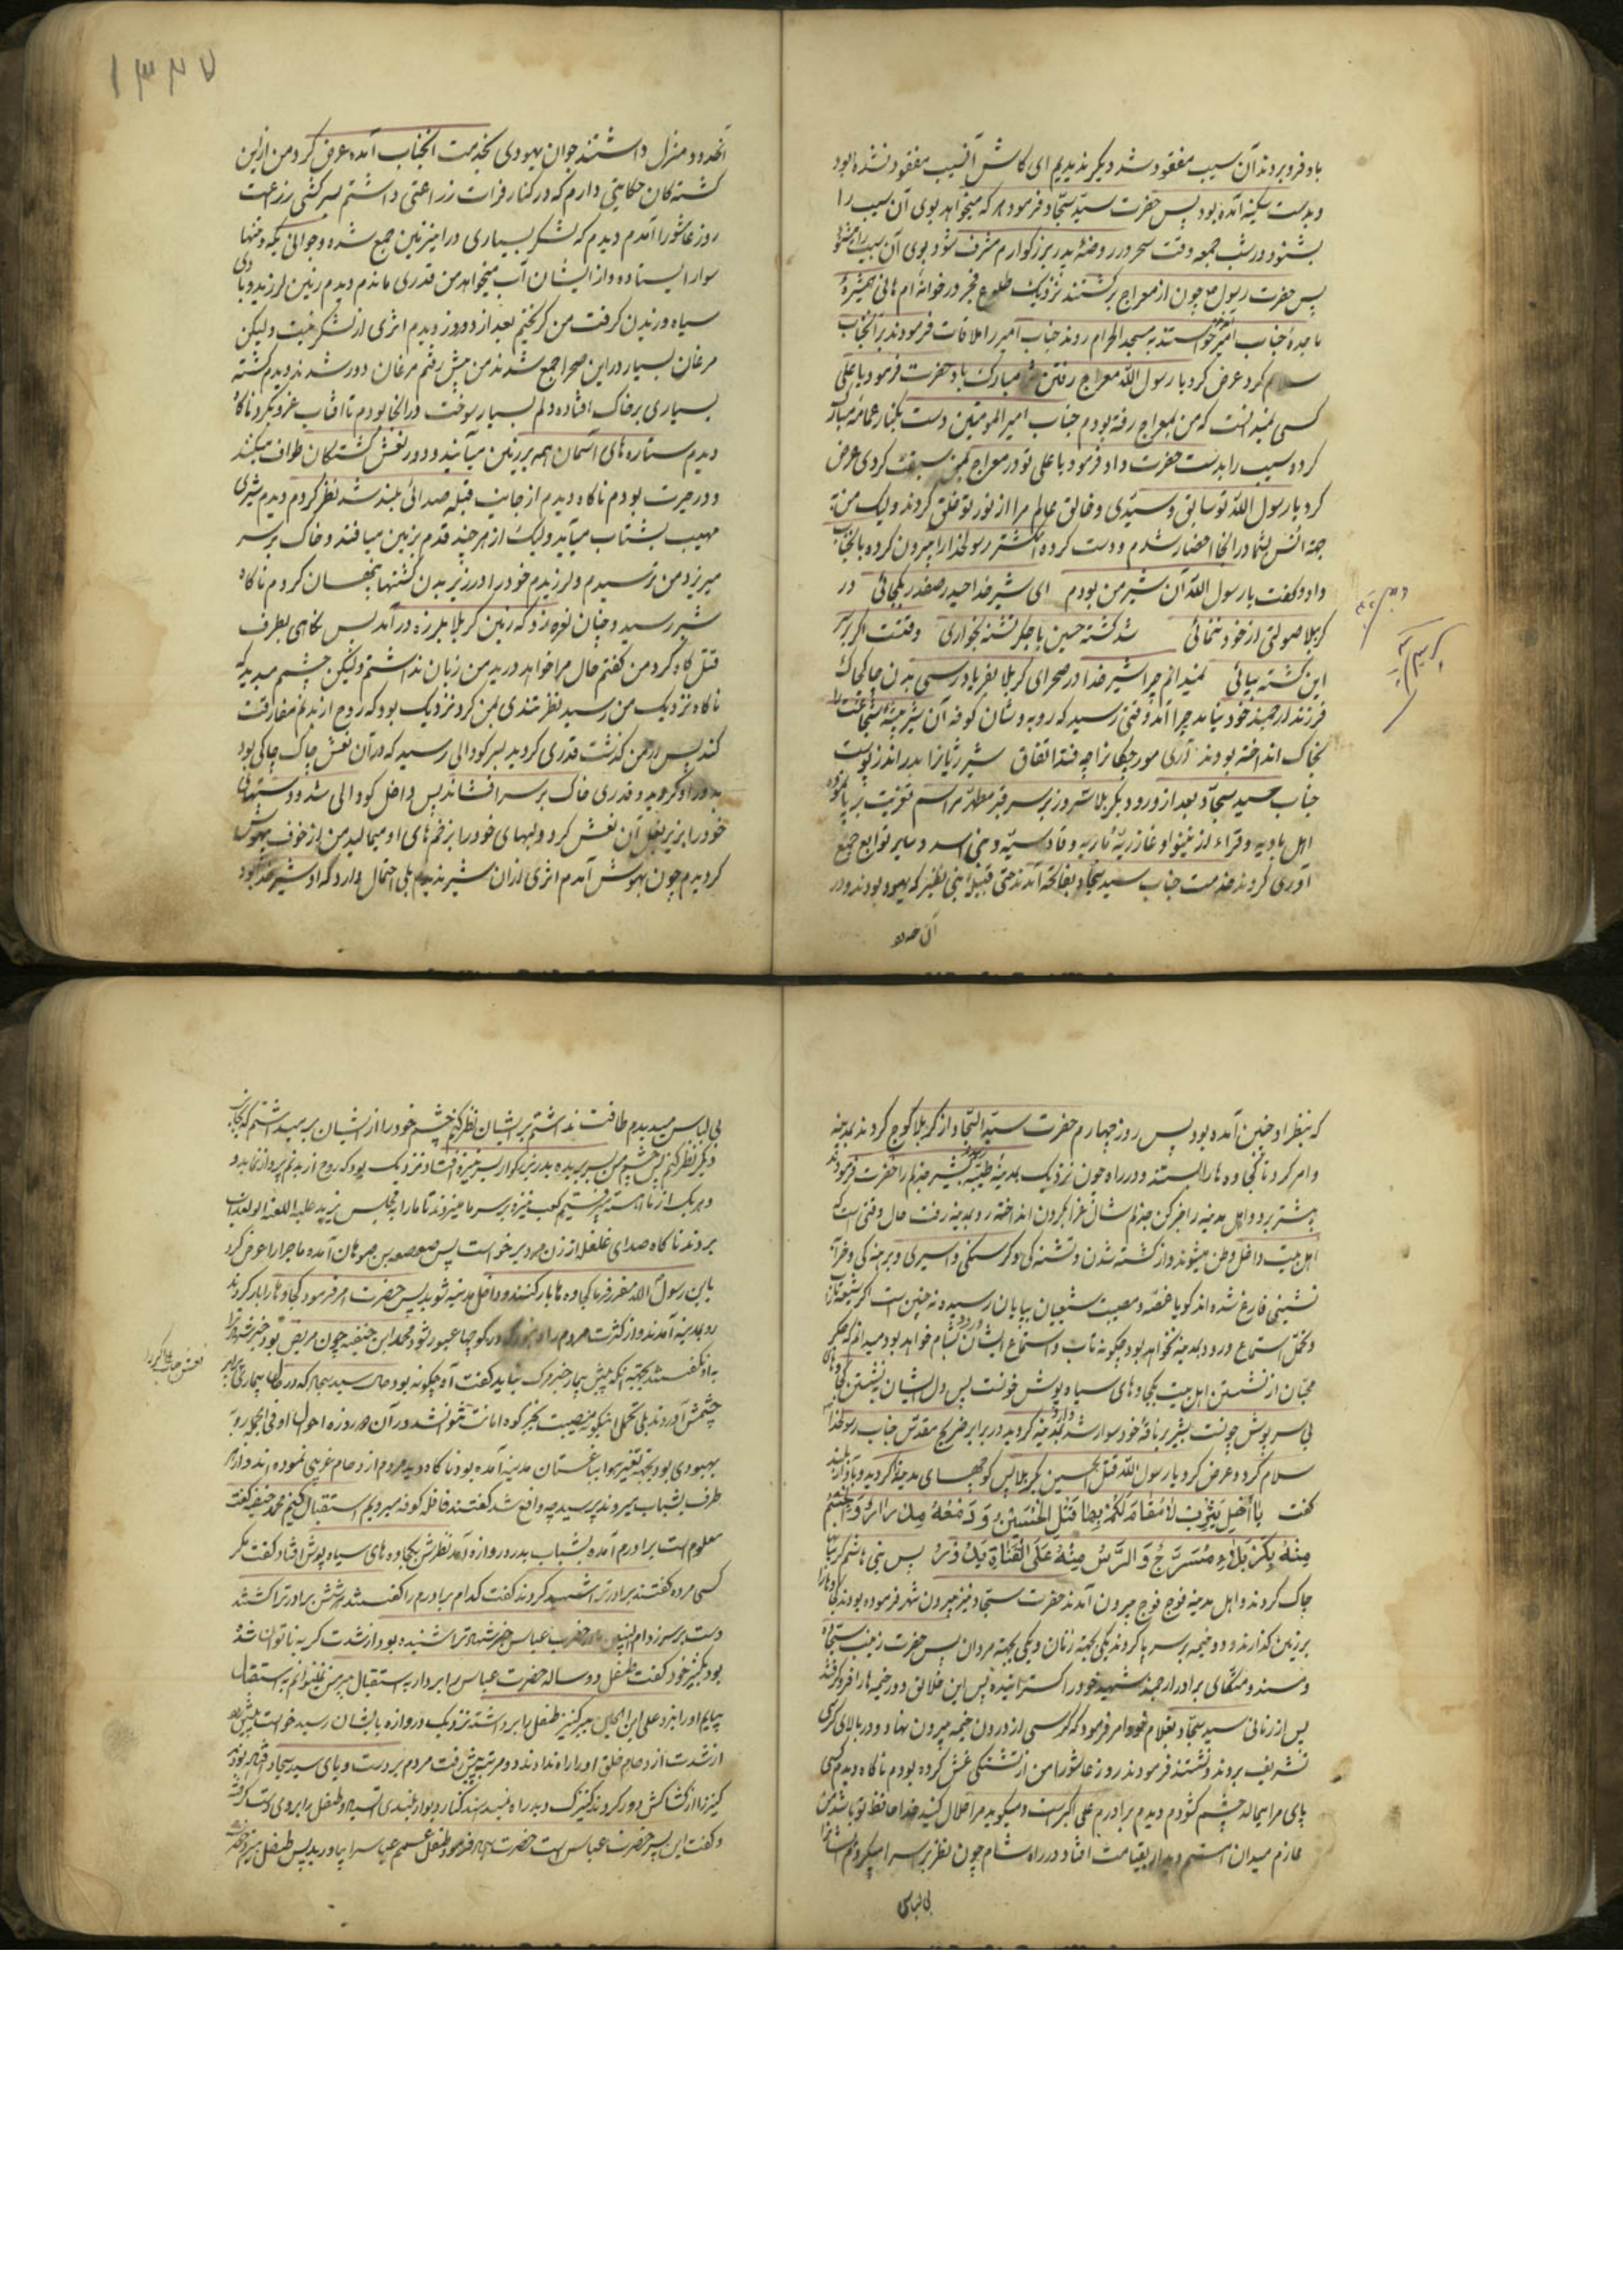 باد فرو بردند آن سیب مفقود شد دیگر ندیدیم ای کاش آن سیب مفقود نشده بود
و بدست سکینه آمده بود پس حضرت سید سجاد فرمود هر که میخواهد بوی آن سیب را
بشنود در شب جمعه وقت سحر در روضهٔ پدر بزرگوارم مشرف شود بوی آن سیب را میشنود
پس حضرت رسول ص چون از معراج برگشتند نزدیک طلوع فجر در خوانهٔ ام هانی همشیرهٔ
ماجدهٔ جناب امیر خواستند به مسجد الحرام روند جناب امیر را ملاقات فرمودند بر آنجناب
سلام کرد عرض کرد یا رسول الله معراج رفتن مبارک باد حضرت فرمود یا علی
کسی نمیدانست که من بمعراج رفته بودم جناب امیر المومنین دست بکنار عمامه مبارک
کرده سیب را بدست حضرت داد فرمود یا علی تو در معراج بمن سبقت کردی عرض
کرد یا رسول الله تو سابق و سیدی و خالق عالم مرا از نور تو خلق کردند ولیک من به
جهة انس بشما در آنجا احضار شدم و دست کرده انگشتر رسولخدا را بیرون کرده بآنجناب
داد و گفت یا رسول الله آن شیر من بودم ای شیر خدا حیدر صفدر بکجائی در
کربلا صولتی از خود ننمائی شد کشته حسین با جگر تشنه بخواری وقتست اگر بر سر
این کشته بیائی نمیدانم چرا شیر خدا در صحرای کربلا بفریادرسی بدن چاکچاک
فرزند ارجمند خود نیامد چرا آمد وقتی رسید که روبه وشان کوفه آن شیر بیشهٔ شجاعت را
بخاک انداخته بودند آری مورچگانرا چه فتد اتفاق شیر ژیانرا بدرانند پوست
جناب سید سجاد بعد از ورود بکربلا سه روز بر سر قبر مطهر مراسم تعزیت بر پا نمود
اهل بادیه و قراء از نینوا و غازریه و ماریه و قادسیه و بنی اسد و سایر توابع جمع
آوری کردند خدمت جناب سید سجاد بفاتحه آمدند حتی قبیله بنی نظیر که یهود بودند و در
آن حدود
آنحدود منزل داشتند جوان یهودی بخدمت آنجناب آمده عرض کرد من از این
کشته‌گان حکایتی دارم که در کنار فرات زراعتی داشتم سرکشی زراعت
روز عاشورا آمدم دیدم که لشکر بسیاری در این زمین جمع شده و جوانی یکه و تنها
سوار ایستاده و از ایشان آب میخواهد من قدری ماندم دیدم زمین لرزید و باد
سیاه وزیدن گرفت من گریختم بعد از دو روز دیدم اثری از لشکر نیست ولیکن
مرغان بسیار در این صحرا جمع شدند من پیش رفتم مرغان دور شدند دیدم کشته
بسیاری بر خاک افتاده دلم بسیار سوخت در آنجا بودم تا آفتاب غروب کرد ناگاه
دیدم ستاره‌های آسمان همه بر زمین میآیند و دور نعش کشتگان طواف میکنند
و در حیرت بودم ناگاه دیدم از جانب قبله صدائی بلند شد نظر کردم دیدم شیری
مهیب بشتاب میآید ولیک از هر چند قدم بزمین میافتد و خاک بر سر
میریزد من ترسیدم و لرزیدم خود را در زیر بدن کشتها پنهان کردم ناگاه
شیر رسید و چنان نعره زد که زمین کربلا بلرزه در آمد پس نگاهی بطرف
قتل گاه کرد من گفتم حال مرا خواهد درید من زبان نداشتم ولیکن چشم میدید که
ناگاه نزدیک من رسید نظر تندی بمن کرد نزدیک بود که روح از بدنم مفارقت
کند پس از من گذشت قدری گردید بسر گودالی رسید که در آن نعش چاک چاکی بود
بدور او گردید و قدری خاک بر سر افشاند پس داخل گودالی شد و دستهای
خود را بزیر بغل آن نعش کرد و لبهای خود را بزخمهای او میمالید من از خوف بیهوش
گردیدم چون بهوش آمدم اثری از آن شیر ندیدم بلی احتمال وارد که او شیر خدا بود
که بنظر او چنین آمده بود پس روز چهارم حضرت سید السجاد از کربلا کوچ کردند بمدینه
و امر کرد تا کجاوه‌ها را بستند و در راه چون نزدیک بمدینهٔ طیبه رسید بشیر جذلم را حضرت فرمودند
پیشتر برو و اهل مدینه را خبر کن جذلم شال عزا بگردن انداخته رو بمدینه رفت حال وقتی است که
اهل بیت داخل وطن میشوند و از کشته شدن و تشنه‌گی و گرسنگی و اسیری و برهنه‌گی و خرابه
نشینی فارغ شده‌اند گویا غصه و مصیبت شیعیان بپایان رسیده نه چنین است اگر شیعه تاب
و تحمل استماع ورود بمدینه نخواهد بود چگونه تاب و استماع ایشان بشام خواهد بود میدانم که جگر
محبان از نشستن اهل بیت بکجاوهای سیاه پوش خونست پس دل ایشان نشستن کجاوهای
بی سرپوش چونست بشیر بر ناقهٔ خود سوار شد وارد مدینه گردید در برابر ضریح مقدس جناب رسولخدا
سلام کرد و عرض کرد یا رسول الله قتل الحسین بکربلا پس کوچهای مدینه گردید و بآواز بلند
گفت یا اَهْلَ یَثْرِبَ لا مُقامَ لَکُمْ بِها قُتِلَ الْحُسَیْنُ وَ دَمْعُهُ مِدْرارُ وَ الْجِسْمُ
مِنْهُ بِکَرْبَلاءِ مُضَرَّجُ وَ الرَّاسُ مِنْهُ عَلَی الْقَناةِ یُدَوَّرُ پس بنی هاشم گریبانها
چاک کردند و اهل مدینه فوج فوج بیرون آمدند حضرت سجاد نیز بیرون شهر فرموده بودند کجاوها را
بر زمین گذارند و دو خیمه بر سر پا کردند یکی بجهة زنان و یکی بجهة مردان پس حضرت زینب سجاده
و مسند و متکای برادر ارجمند شهید خود را گسترانیده پس این خلائق دور خیمه‌ها را فرو گرفتند
پس از زمانی سید سجاد بغلام خود امر فرمود که کرسی از درون خیمه بیرون نهاد و در بالای کرسی
تشریف بردند و نشستند فرمودند روز عاشورا من از تشنگی غش کرده بودم ناگاه دیدم کسی
پای مرا میمالد چشم گشودم دیدم برادرم علی اکبر است و میگوید مرا حلال کنید خدا حافظ تو باشد من
عازم میدان هستم دیدار بقیامت افتاد و در راه شام چون نظر بر سرا میکردم
بی لباس
بی لباس میدیدم طاقت نداشتم بر ایشان نظر کنم چشم خود را از ایشان بر میداشتم که بجانب
دیگر نظر کنم پس چشم من بسر بریده پدر بزرگوار بسر نیزه افتاد نزدیک بود که روح از بدنم پرواز نماید و
و هر یک از ما آهسته میرفتیم کعب نیزه بر سر ما میزدند تا ما را بمجلس یزید علیه اللعنه و العذاب
بردند ناگاه صدای غلغله از زن و مرد برخواست پس صعصعة بن صوحان آمده ماجرا را عرض کرد
یا بن رسول الله مقرر فرما کجاوه‌ها بار کنند و داخل مدینه شوید پس حضرت امر فرمود کجاوها را بار کردند
رو بمدینه آمدند و از کثرت مردم راه نبود که در کوچها عبور شود محمد ابن حنفیه چون مریض بود خبر شهدا را
به او نگفتند بجهة آنکه پیش بیمار خبر مرگ نباید گفت آه چگونه بود حال سید سجاد که در حال بیماری سر پدر
چشمش آوردند بلی تحمل اینگونه مصیبت بجز کوه امامت نتوانستند در آن روز احوال او فی الجمله رو به
بهبودی بود بجهة تغییر هوا بباغستان مدینه آمده بود ناگاه دید مردم ازدحام غریبی نموده‌اند و از هر
طرف بشتاب میروند پرسید چه واقع شد گفتند قافله کوفه میرویم استقبال کنیم محمد حنفیه گفت
معلوم است برادرم آمده بشتاب بدر دروازه آمد نظرش بکجاوه‌های سیاه پوش افتاد گفت مگر
کسی مرده گفتند برادرت را شهید کردند گفت کدام برادرم را گفتند شش برادرت را کشتند
دست بر سر زد ام البنین مادر حضرت عباس خبر شهادت را شنیده بود از شدت گریه ناتوان شده
بود بکنیز خود گفت طفل دو ساله حضرت عباس را بردار به استقبال ببر من نمیتوانم به استقبال
بیایم او را نزد علی ابن الحسین ببر کنیز طفل را برداشته نزدیک دروازه بایشان رسید خواست پیش رود
از شدت ازدحام خلق او را راه ندادند دو مرتبه پیش رفت مردم بر دست و پای سید سجاد افتاده بودند
کنیز را از کشاکش دور کردند کنیزک دید راه نمیدهند کنار دیوار بلندی ایستاد و طفل را بروی دست گرفت
و گفت این پسر حضرت عباس است حضرت سجاد فرمود طفل عمم عباس را بیاورید پس طفل